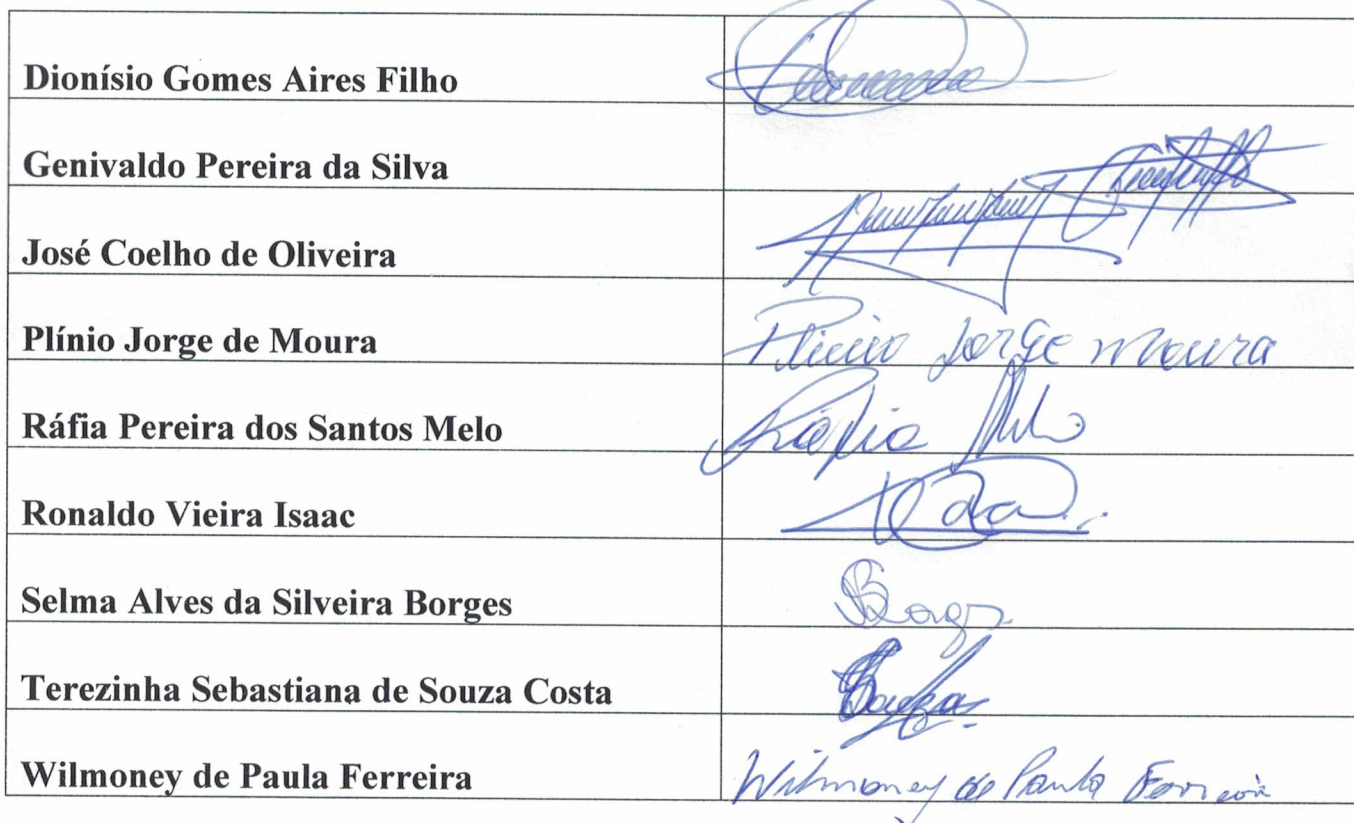 Dionísio Gomes Aires Filho
Genivaldo Pereira da Silva
José Coelho de Oliveira
Plínio Jorge de Moura Plinio Jorge Moura
Ráfia Pereira dos Santos Melo Ráfia Melo
Ronaldo Vieira Isaac
Selma Alves da Silveira Borges SBorges
Terezinha Sebastiana de Souza Costa
Wilmoney de Paula Ferreira Wilmoney de Paula Ferreira